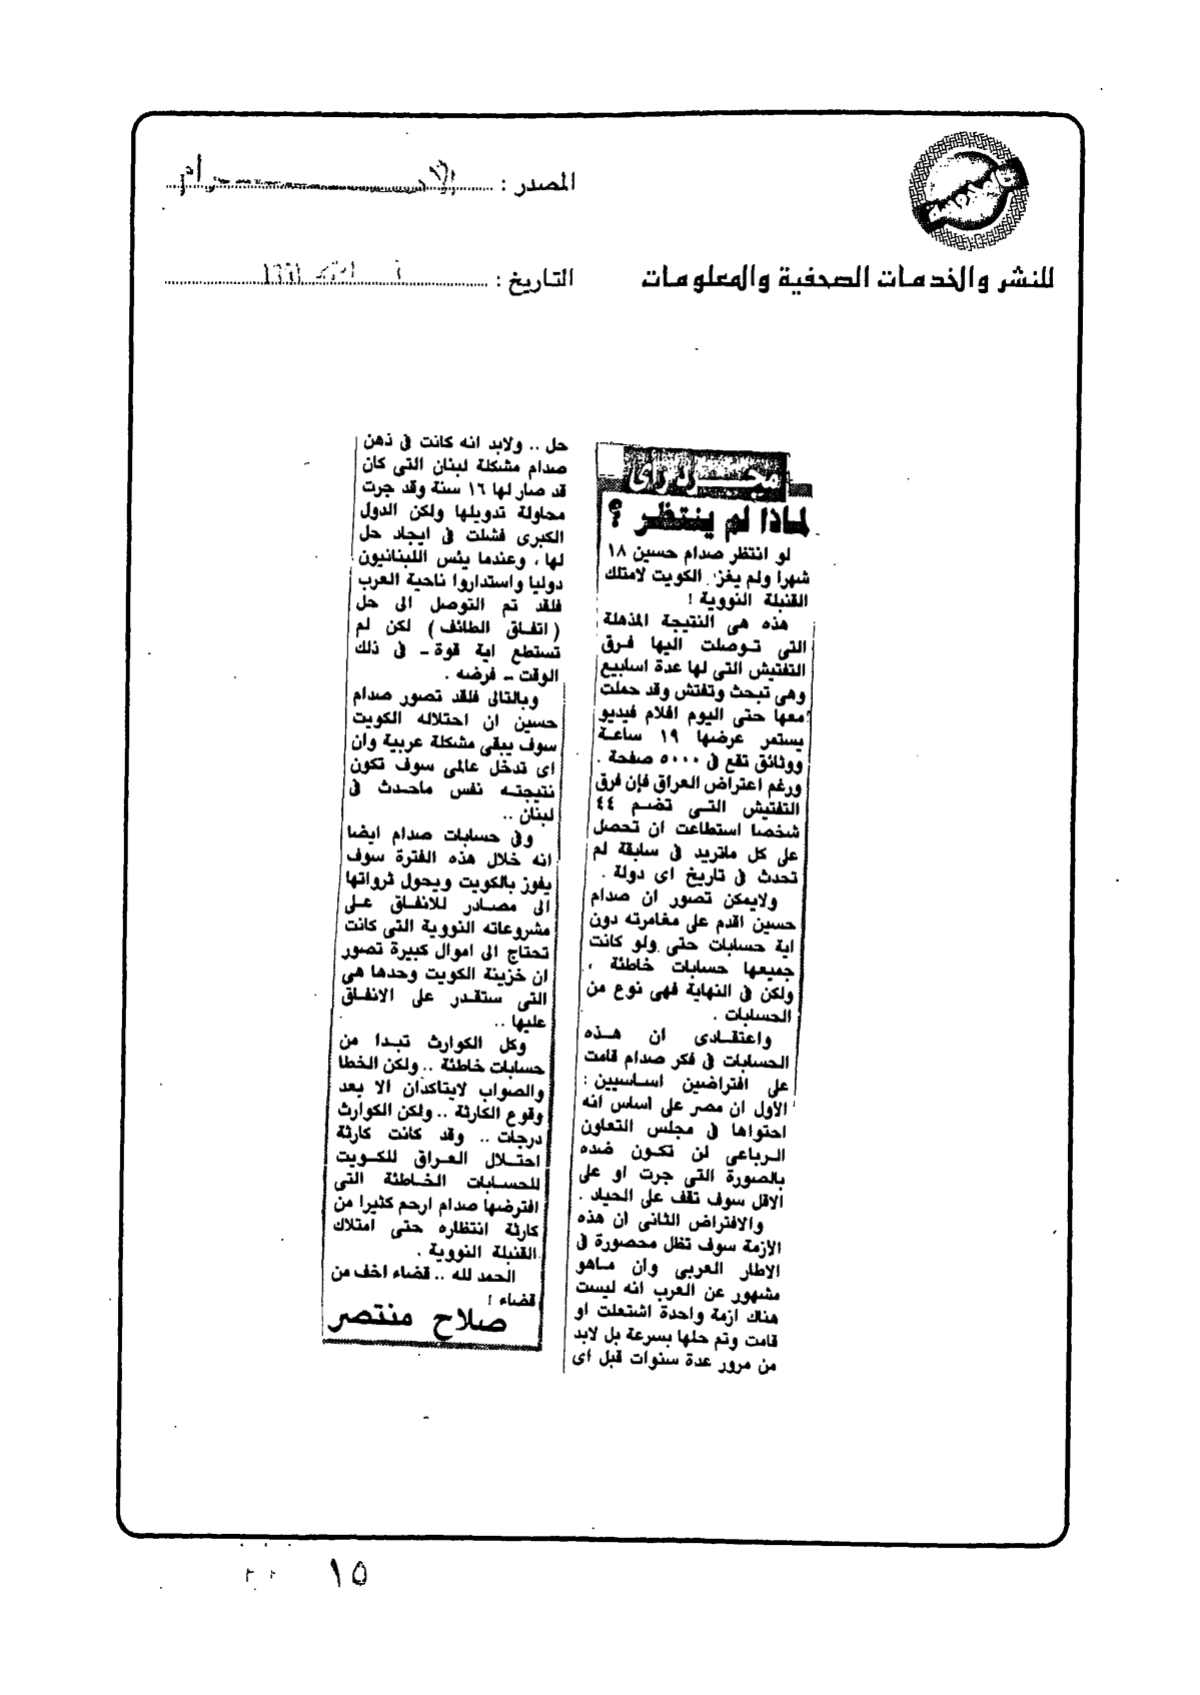 المصدر : الأهرام
للنشر والخدمات الصحفية والمعلومات
التاريخ :
مجرد رأى
لماذا لم ينتظر ؟
لو انتظر صدام حسين ١٨
شهرا ولم يغز الكويت لامتلك
القنبلة النووية !
هذه هى النتيجة المذهلة
التى توصلت اليها فرق
التفتيش التى لها عدة اسابيع
وهى تبحث وتفتش وقد حملت
معها حتى اليوم افلام فيديو
يستمر عرضها ١٩ ساعة
ووثائق تقع فى ٥٠٠٠ صفحة .
ورغم اعتراض العراق فإن فرق
التفتيش التى تضم ٤٤
شخصا استطاعت ان تحصل
على كل ماتريد فى سابقة لم
تحدث فى تاريخ اى دولة .
ولايمكن تصور ان صدام
حسين اقدم على مغامرته دون
اية حسابات حتى ولو كانت
جميعها حسابات خاطئة ،
ولكن فى النهاية فهى نوع من
الحسابات .
واعتقادى ان هذه
الحسابات فى فكر صدام قامت
على افتراضين اساسيين :
الأول ان مصر على اساس انه
احتواها فى مجلس التعاون
الرباعى لن تكون ضده
بالصورة التى جرت او على
الاقل سوف تقف على الحياد .
والافتراض الثانى ان هذه
الازمة سوف تظل محصورة فى
الاطار العربى وان ماهو
مشهور عن العرب انه ليست
هناك ازمة واحدة اشتعلت او
قامت وتم حلها بسرعة بل لابد
من مرور عدة سنوات قبل اى
حل .. ولابد انه كانت فى ذهن
صدام مشكلة لبنان التى كان
قد صار لها ١٦ سنة وقد جرت
محاولة تدويلها ولكن الدول
الكبرى فشلت فى ايجاد حل
لها ، وعندما يئس اللبنانيون
دوليا واستداروا ناحية العرب
فلقد تم التوصل الى حل
( اتفاق الطائف ) لكن لم
تستطع اية قوة ـ فى ذلك
الوقت ـ فرضه .
وبالتالى فلقد تصور صدام
حسين ان احتلاله الكويت
سوف يبقى مشكلة عربية وان
اى تدخل عالمى سوف تكون
نتيجته نفس ماحدث فى
لبنان ..
وفى حسابات صدام ايضا
انه خلال هذه الفترة سوف
يفوز بالكويت ويحول ثرواتها
الى مصادر للانفاق على
مشروعاته النووية التى كانت
تحتاج الى اموال كبيرة تصور
ان خزينة الكويت وحدها هى
التى ستقدر على الانفاق
عليها ..
وكل الكوارث تبدا من
حسابات خاطئة .. ولكن الخطا
والصواب لايتاكدان الا بعد
وقوع الكارثة .. ولكن الكوارث
درجات .. وقد كانت كارثة
احتلال العراق للكويت
للحسابات الخاطئة التى
افترضها صدام ارحم كثيرا من
كارثة انتظاره حتى امتلاك
القنبلة النووية .
الحمد لله .. قضاء اخف من
قضاء !
صلاح منتصر
١٥